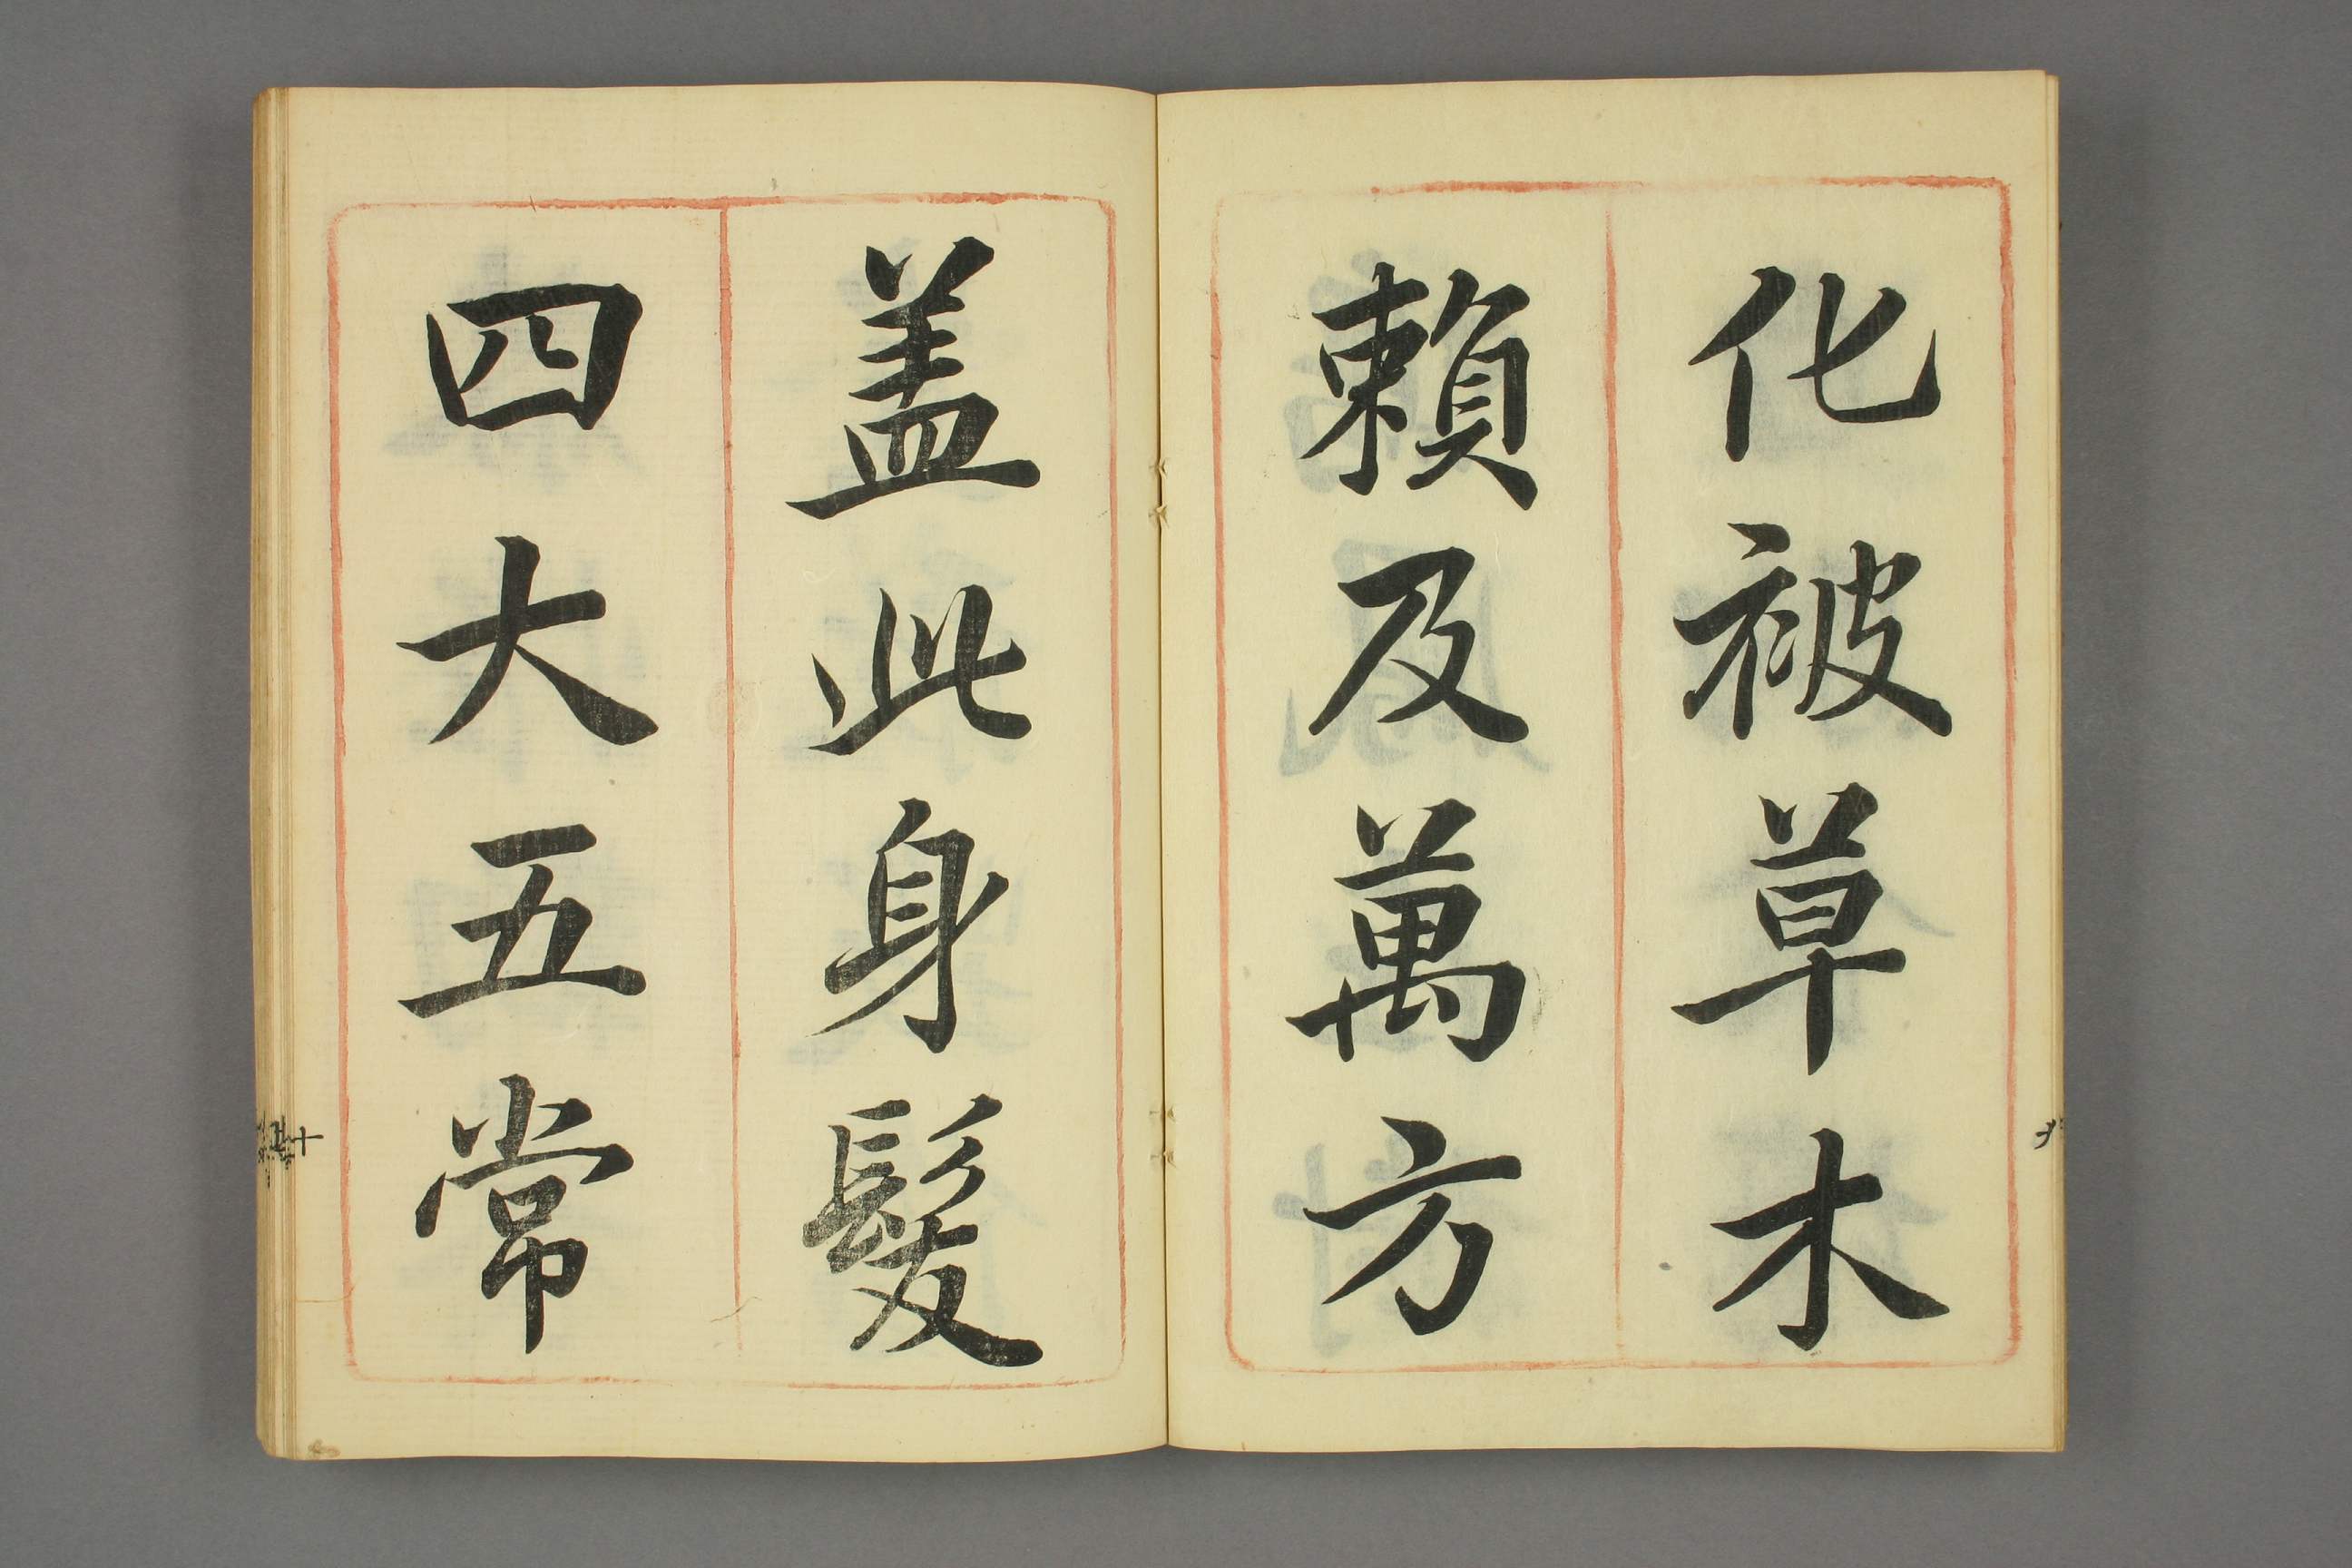 化被草木
賴及萬方
盖此身髮
四大五常